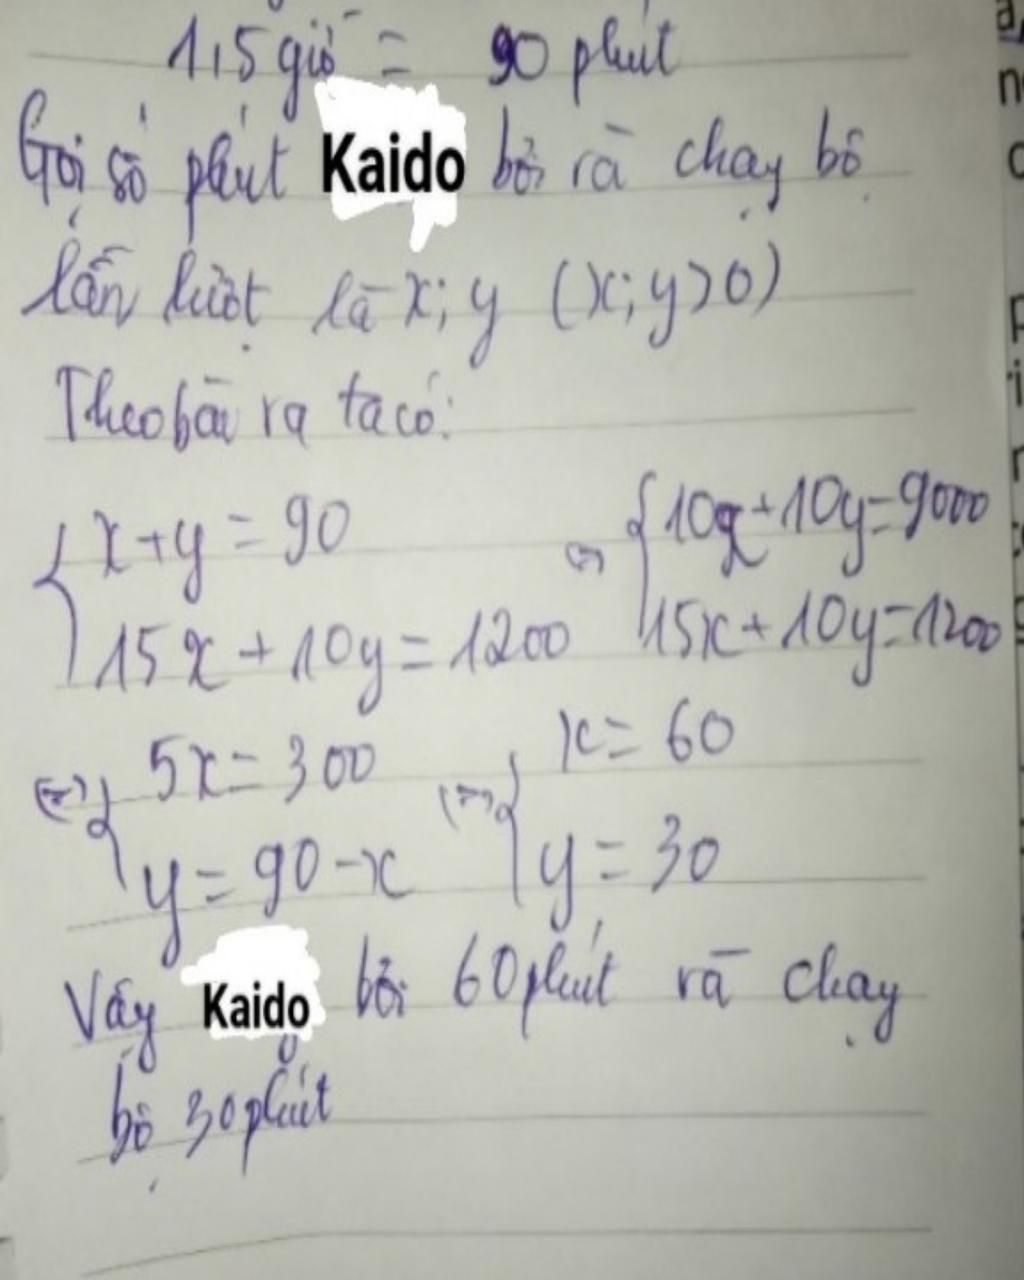 1,5 giờ = 90 phút
Gọi số phút Kaido bơi và chạy bộ
lần lượt là x; y (x; y > 0)
Theo bài ra ta có:
{ x + y = 90 <=> { 10x + 10y = 9000
15x + 10y = 1200 15x + 10y = 1200
<=> { 5x = 300 <=> { x = 60
y = 90 - x y = 30
Vậy Kaido bơi 60 phút và chạy
bộ 30 phút